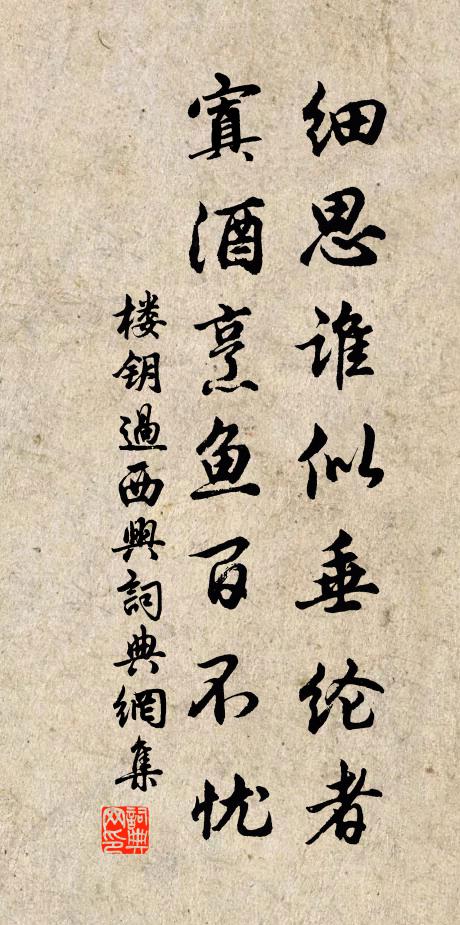 细思谁似垂纶者
寘酒烹鱼百不忧
楼钥過西興詞典網集
詞典网印